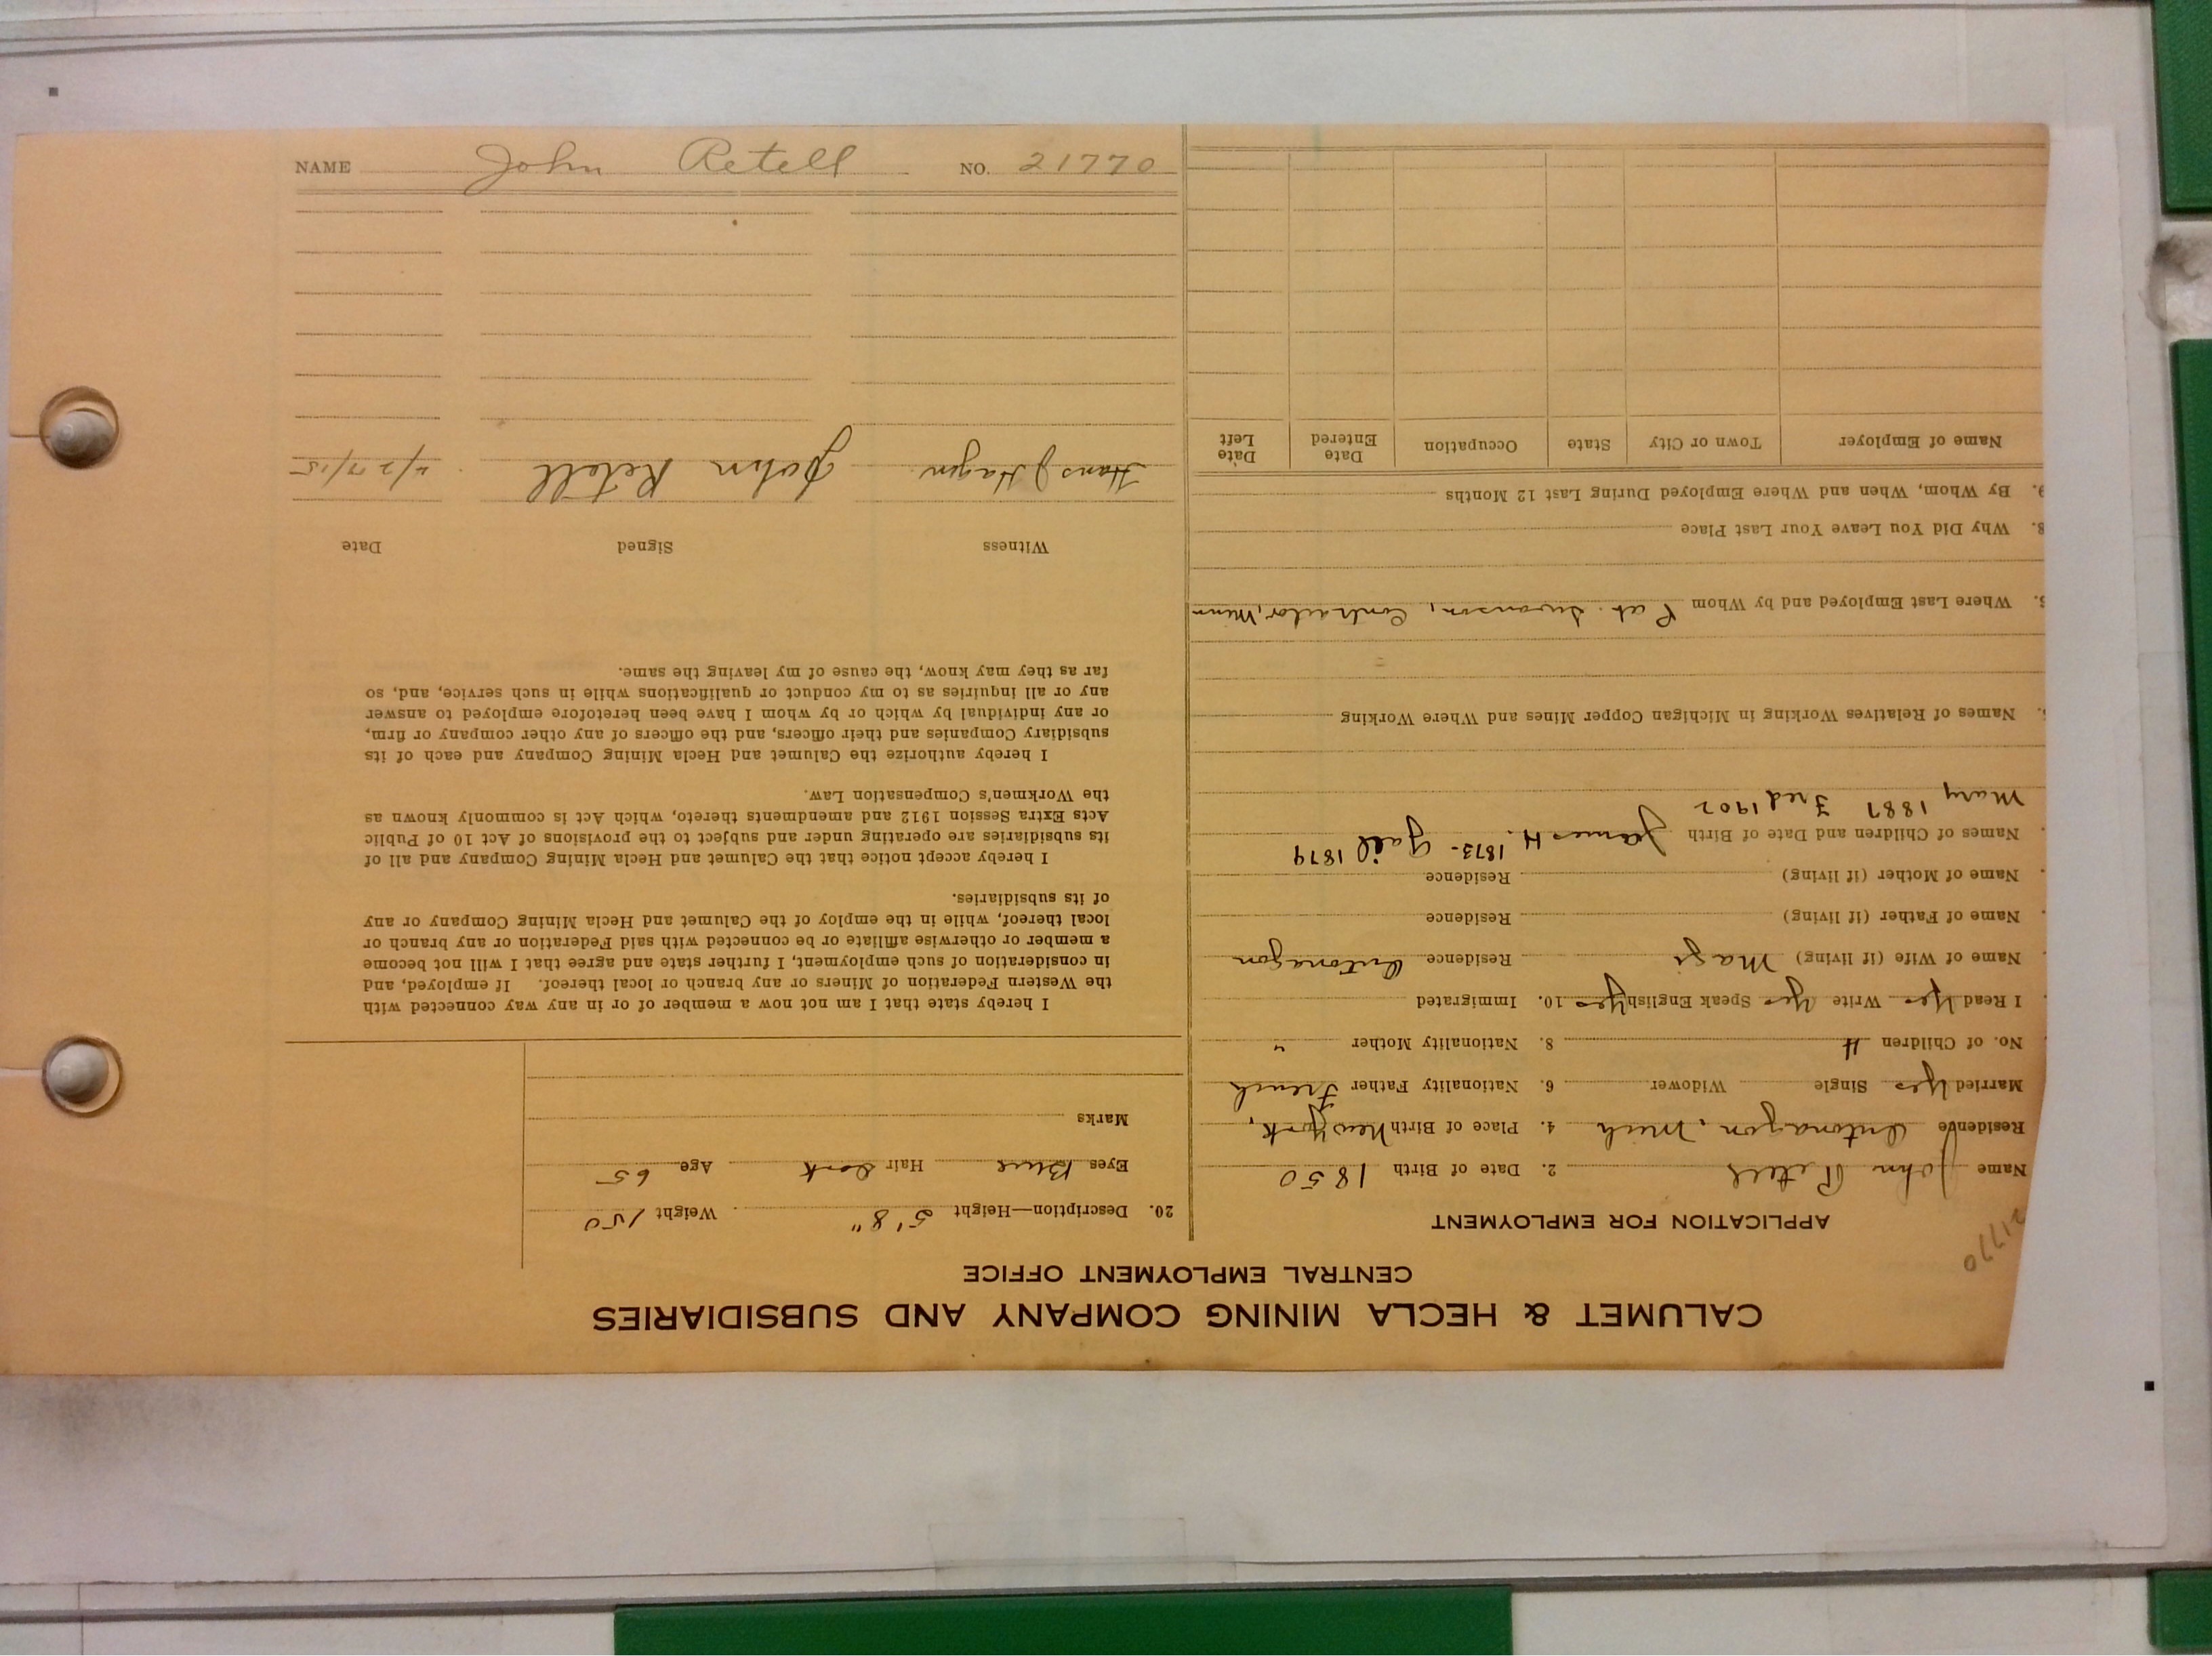 CALUMET & HECLA MINING COMPANY AND SUBSIDIARIES
CENTRAL EMPLOYMENT OFFICE
21770
APPLICATION FOR EMPLOYMENT
Name John Retell 2. Date of Birth 1850
Residence Ontonagon, Mich 4. Place of Birth New York,
Married Yes Single Widower 6. Nationality Father French
No. of Children 4 8. Nationality Mother "
I Read Yes Write Yes Speak English Yes 10. Immigrated
Name of Wife (if living) Residence Ontonagon
Name of Father (if living) Residence
Name of Mother (if living) Residence
Names of Children and Date of Birth James H. 1873-
Mary Fred 1902
Names of Relatives Working in Michigan Copper Mines and Where Working
Where Last Employed and by Whom Pat. Swanson, Contractor, Minn
8. Why Did You Leave Your Last Place
9. By Whom, When and Where Employed During Last 12 Months
Name of Employer Town or City State Occupation Date Entered Date Left
20. Description—Height 5' 8" Weight 150
Eyes Blue Hair Dark Age 65
Marks
I hereby state that I am not now a member of or in any way connected with
the Western Federation of Miners or any branch or local thereof. If employed, and
in consideration of such employment, I further state and agree that I will not become
a member or otherwise affiliate or be connected with said Federation or any branch or
local thereof, while in the employ of the Calumet and Hecla Mining Company or any
of its subsidiaries.
I hereby accept notice that the Calumet and Hecla Mining Company and all of
its subsidiaries are operating under and subject to the provisions of Act 10 of Public
Acts Extra Session 1912 and amendments thereto, which Act is commonly known as
the Workmen's Compensation Law.
I hereby authorize the Calumet and Hecla Mining Company and each of its
subsidiary Companies and their officers, and the officers of any other company or firm,
or any individual by which or by whom I have been heretofore employed to answer
any or all inquiries as to my conduct or qualifications while in such service, and, so
far as they may know, the cause of my leaving the same.
Witness Signed Date
Hans J Hagen John Retell 4/27/15
NAME John Retell NO. 21770